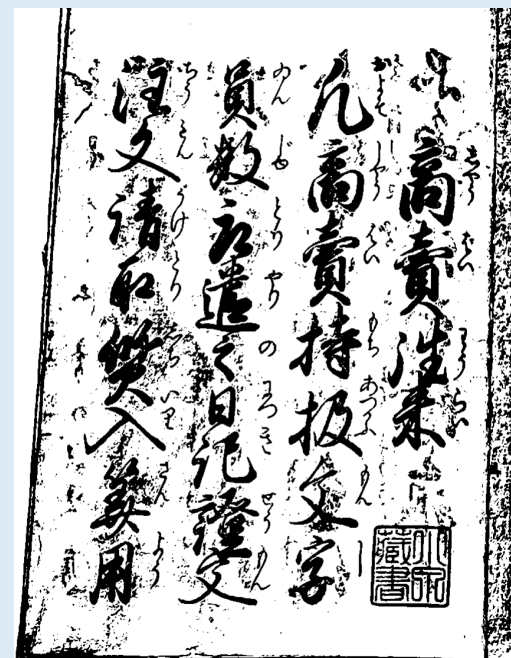 商賣往来
凡商賣持扱文字
員数取遣之日記證文
注文請取質入筭用
藏書